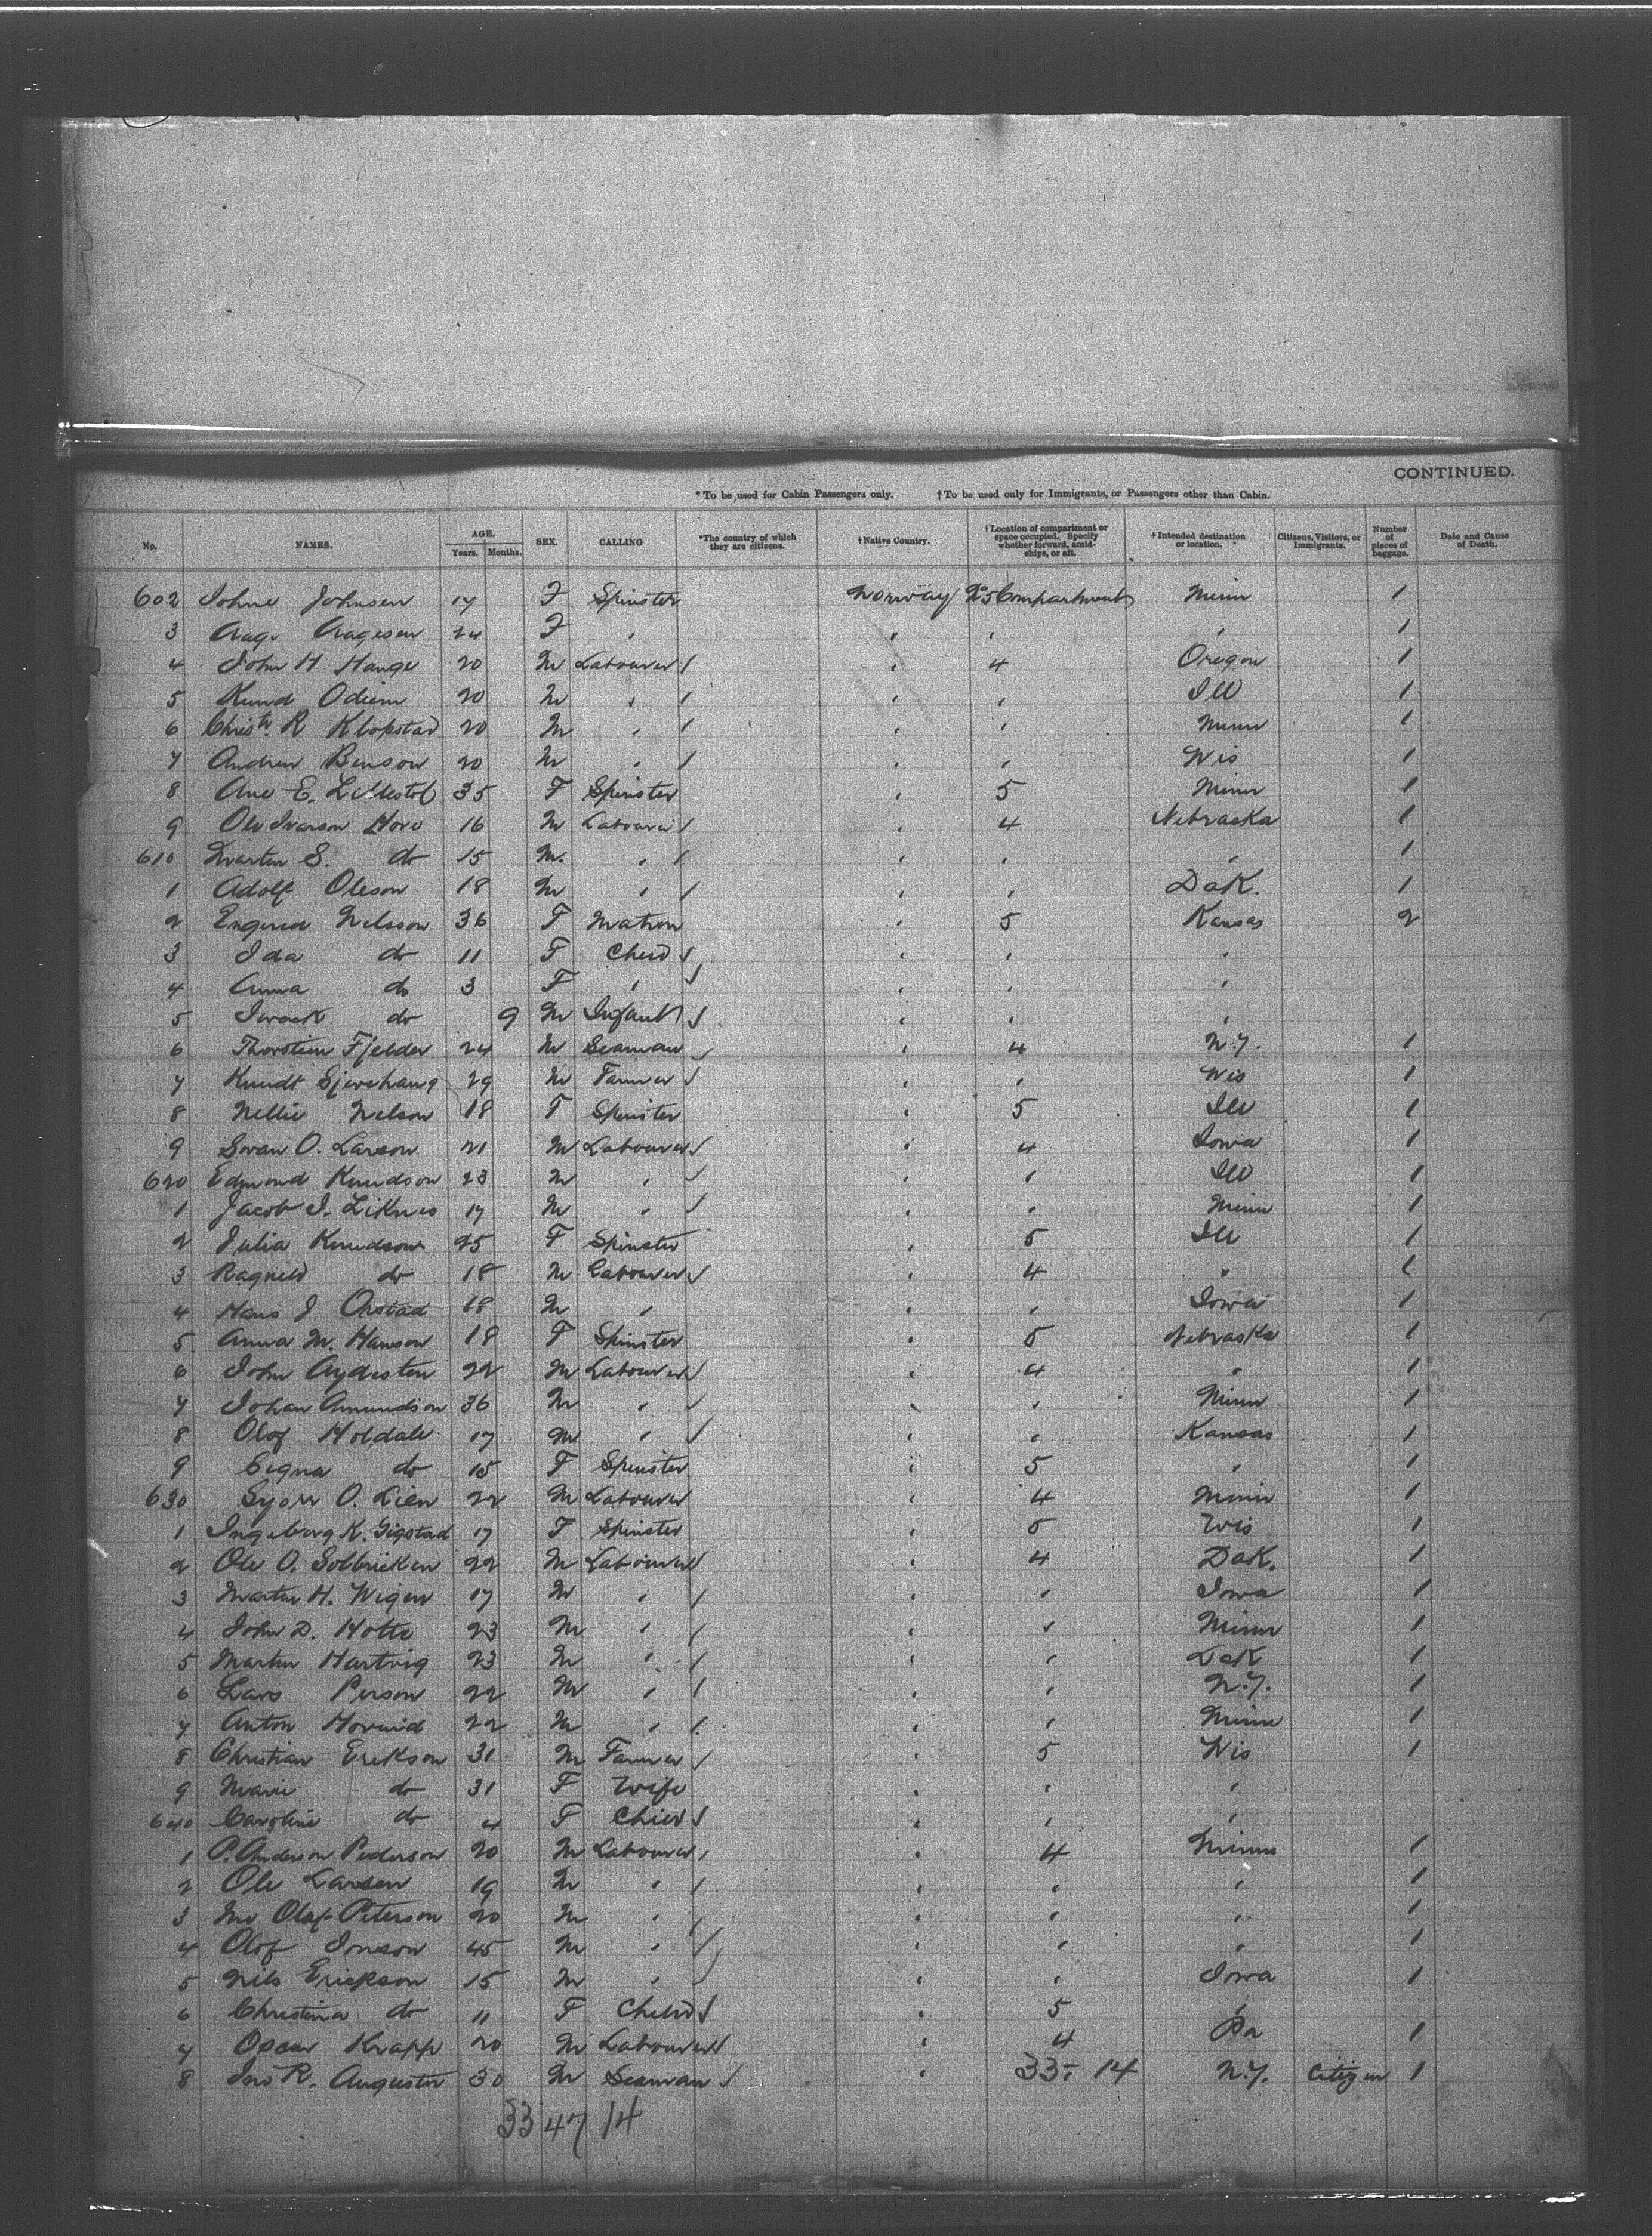 CONTINUED.
* To be used for Cabin Passengers only. † To be used only for Immigrants, or Passengers other than Cabin.
No. NAMES. AGE. Years. Months. SEX. CALLING *The country of which they are citizens. †Native Country. †Location of compartment or space occupied. Specify whether forward, amidships, or aft. †Intended destination or location. Citizens, Visitors, or Immigrants. Number of pieces of baggage. Date and Cause of Death.
602 Johne Johnsen 17 F Spinster Norway No 5 Compartment Minn 1
3 Aage Aagesen 24 F " " " " 1
4 John H Hauge 20 M Labourer / " 4 Oregon 1
5 Knud Odiem 20 M " / " " Ill 1
6 Christ. R Klopstad 20 M " / " " Minn 1
7 Andrew Benson 20 M " / " " Wis 1
8 Ane E. 35 F Spinster " 5 Minn 1
9 Ole Ivarson Hove 16 M Labourer / " 4 Nebraska 1
610 Martin S. do 15 M. " / " " " 1
1 Adolf Oleson 18 M " / " " Dak. 1
2 Nelsson 36 F Matron " 5 Kansas 2
3 Ida do 11 F Child / " " "
4 Anna do 3 F " / " " "
5 do 9 M Infant / " " "
6 Thorstien Fjelder 24 M Seaman / " 4 N.Y. 1
7 Knudt 29 M Farmer / " " Wis 1
8 Nellie Nelson 18 F Spinster " 5 Ill 1
9 Swan O. Larson 21 M Labourer / " 4 Iowa 1
620 Edmond Knudson 23 M " / " " Ill 1
1 Jacob I. Liknes 17 M " / " " Minn 1
2 Julia Knudson 25 F Spinster " 5 Ill 1
3 Ragneld do 18 M Labourer / " 4 " 1
4 Hans J Orstad 18 M " " " Iowa 1
5 Anna M. Hanson 18 F Spinster " 5 Nebraska 1
6 John Aydesten 22 M Labourer / " 4 " 1
7 Johan Amundson 36 M " / " " Minn 1
8 Olof Holdale 17 M " / " " Kansas 1
9 Signa do 15 F Spinster " 5 " 1
630 O. Lien 22 M Labourer " 4 Minn 1
1 Ingeborg K. Gigstad 17 F Spinster " 5 Wis 1
2 Ole O. Solbricken 22 M Labourer / " 4 Dak. 1
3 Martin H. Wigen 17 M " / " " Iowa 1
4 John D. Hotte 23 M " / " " Minn 1
5 Martin Hartvig 23 M " / " " Dak 1
6 Lars Person 22 M " / " " N.Y. 1
7 Anton Hovrind 22 M " / " " Minn 1
8 Christian Erikson 31 M Farmer / " 5 Wis 1
9 Marie do 31 F Wife " " "
640 Caroline do 4 F Child / " " "
1 P. Anderson Pederson 20 M Labourer / " 4 Minn 1
2 Ole Larsen 19 M " / " " " 1
3 Olaf Peterson 20 M " / " " " 1
4 Olof Jonson 45 M " / " " " 1
5 Nils Erickson 15 M " / " " Iowa 1
6 Christina do 11 F Child / " 5 "
7 Oscar Krapp 20 M Labourer / " 4 Pa 1
8 Jno R. Auguster 30 M Seaman / " 33 - 14 N.Y. Citizen 1
33 47 14